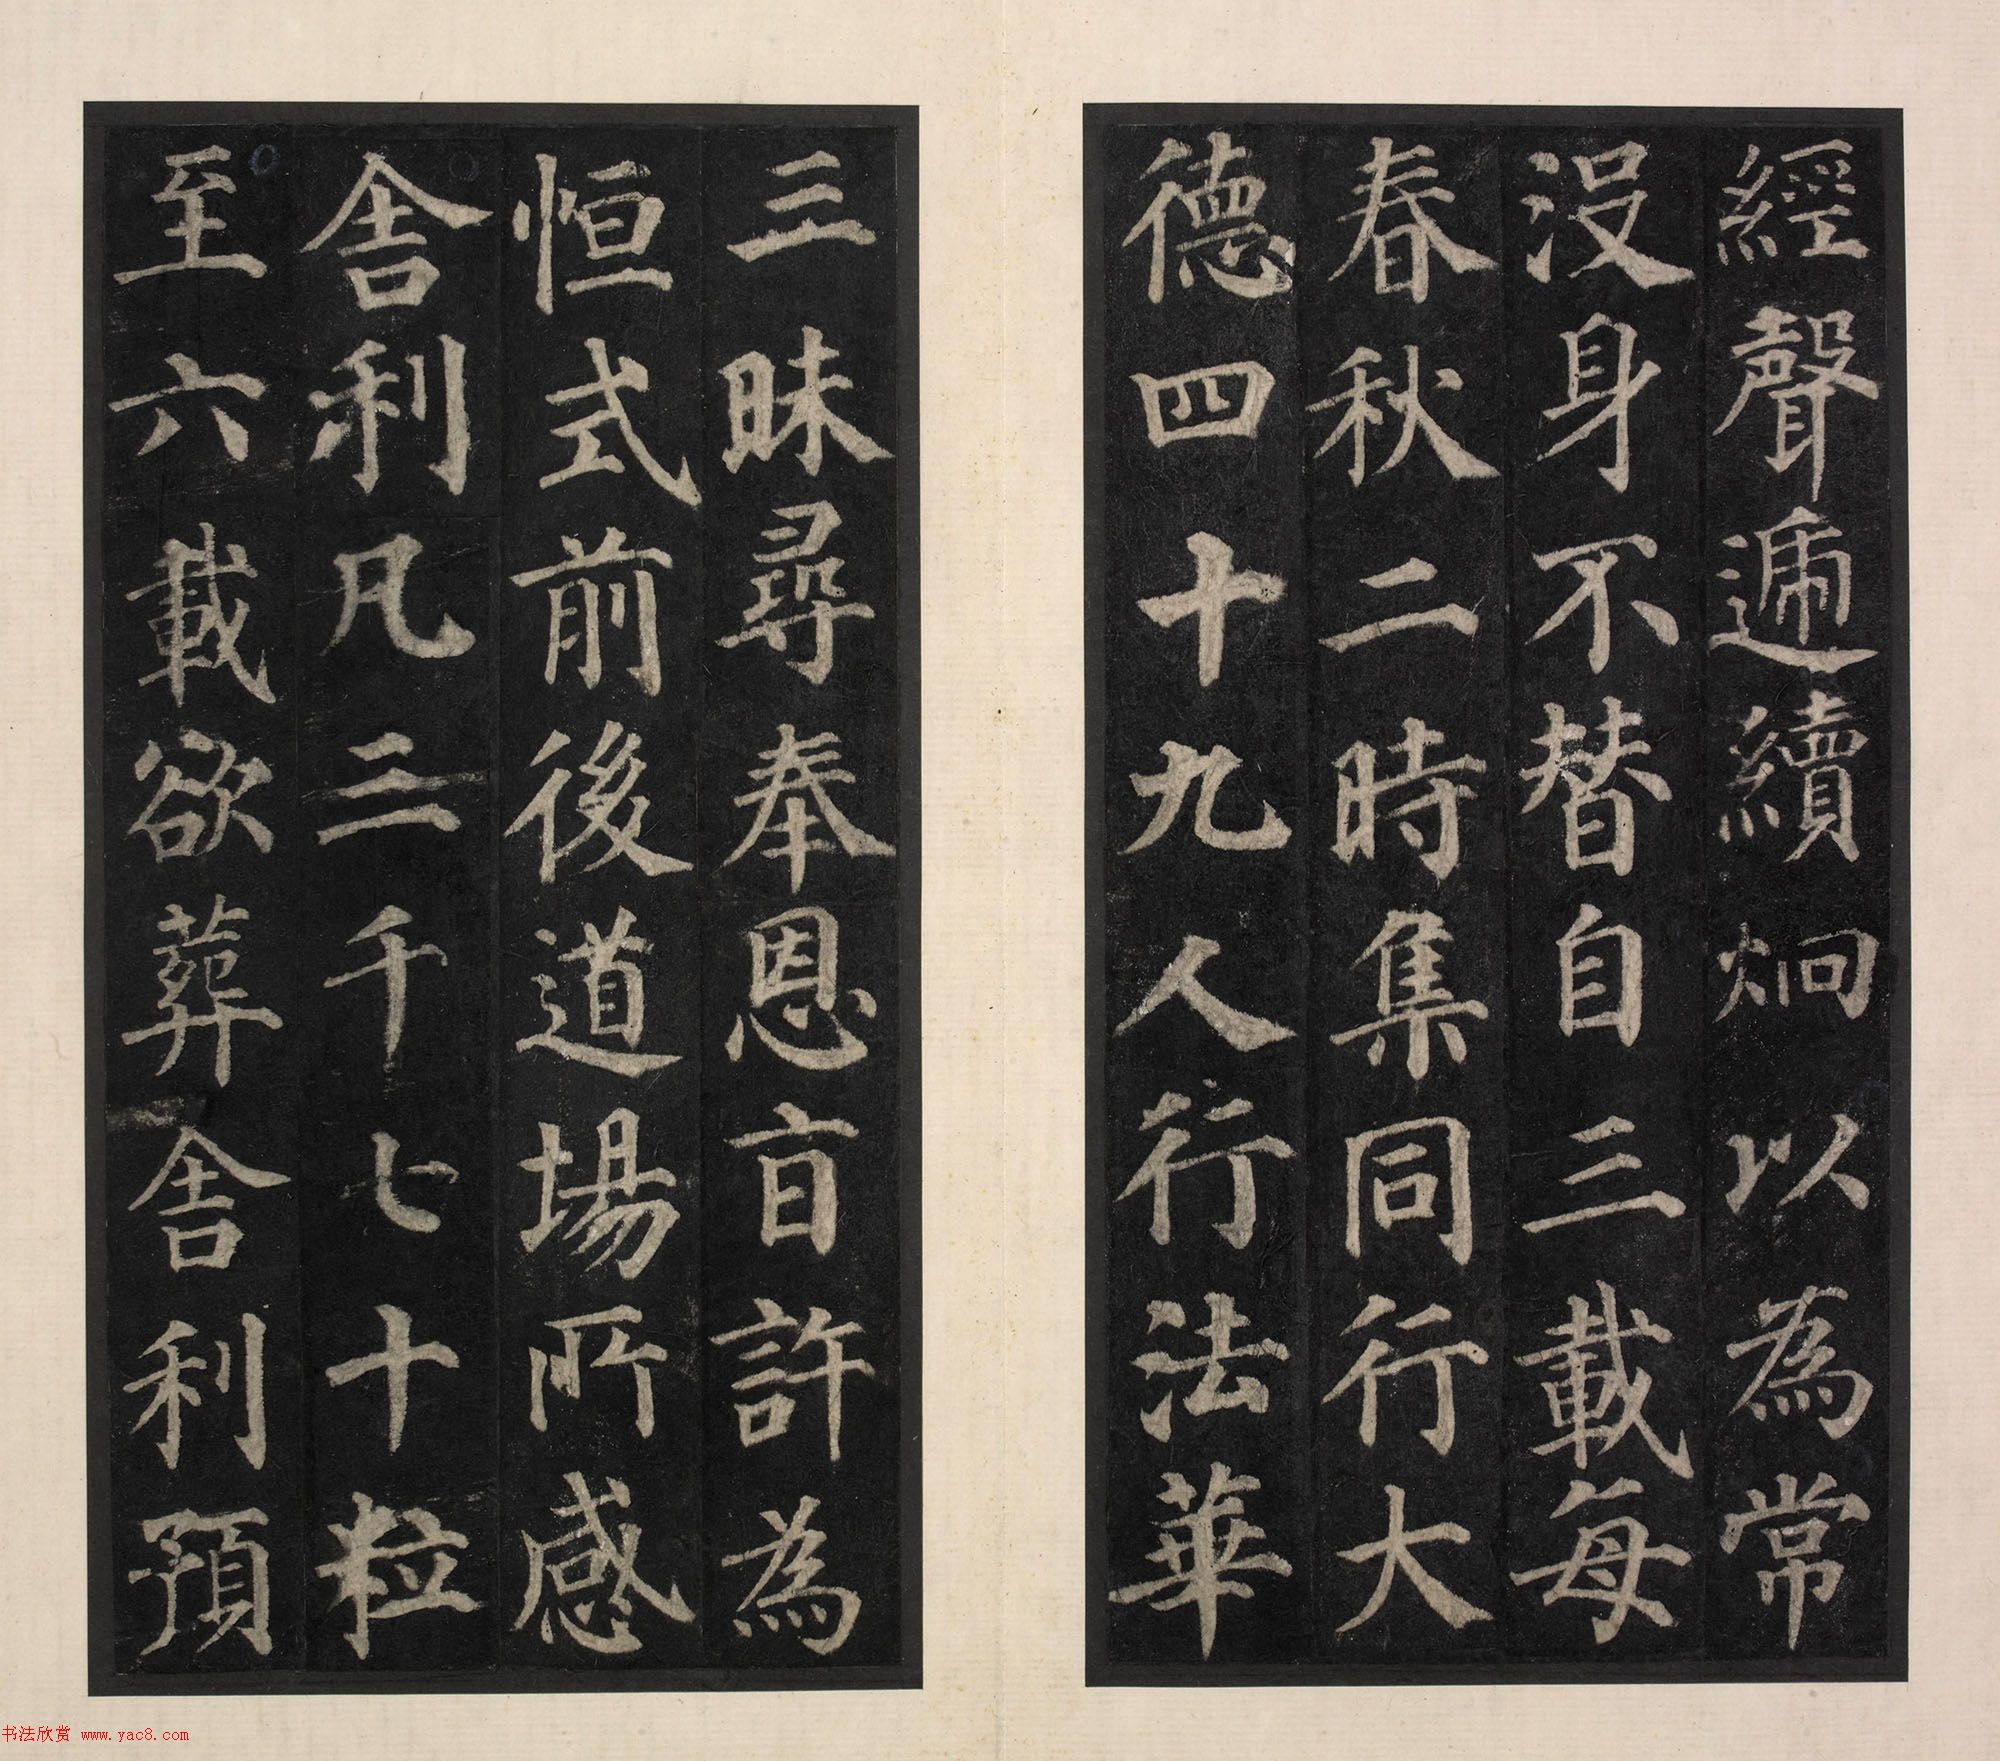 經聲遞續炯以為常
没身不替自三載每
春秋二時集同行大
德四十九人行法華
三昧尋奉恩盲許為
恒式前後道場所感
舍利凡三千七十粒
至六載欲葬舍利預
书法欣赏 www.yac8.com